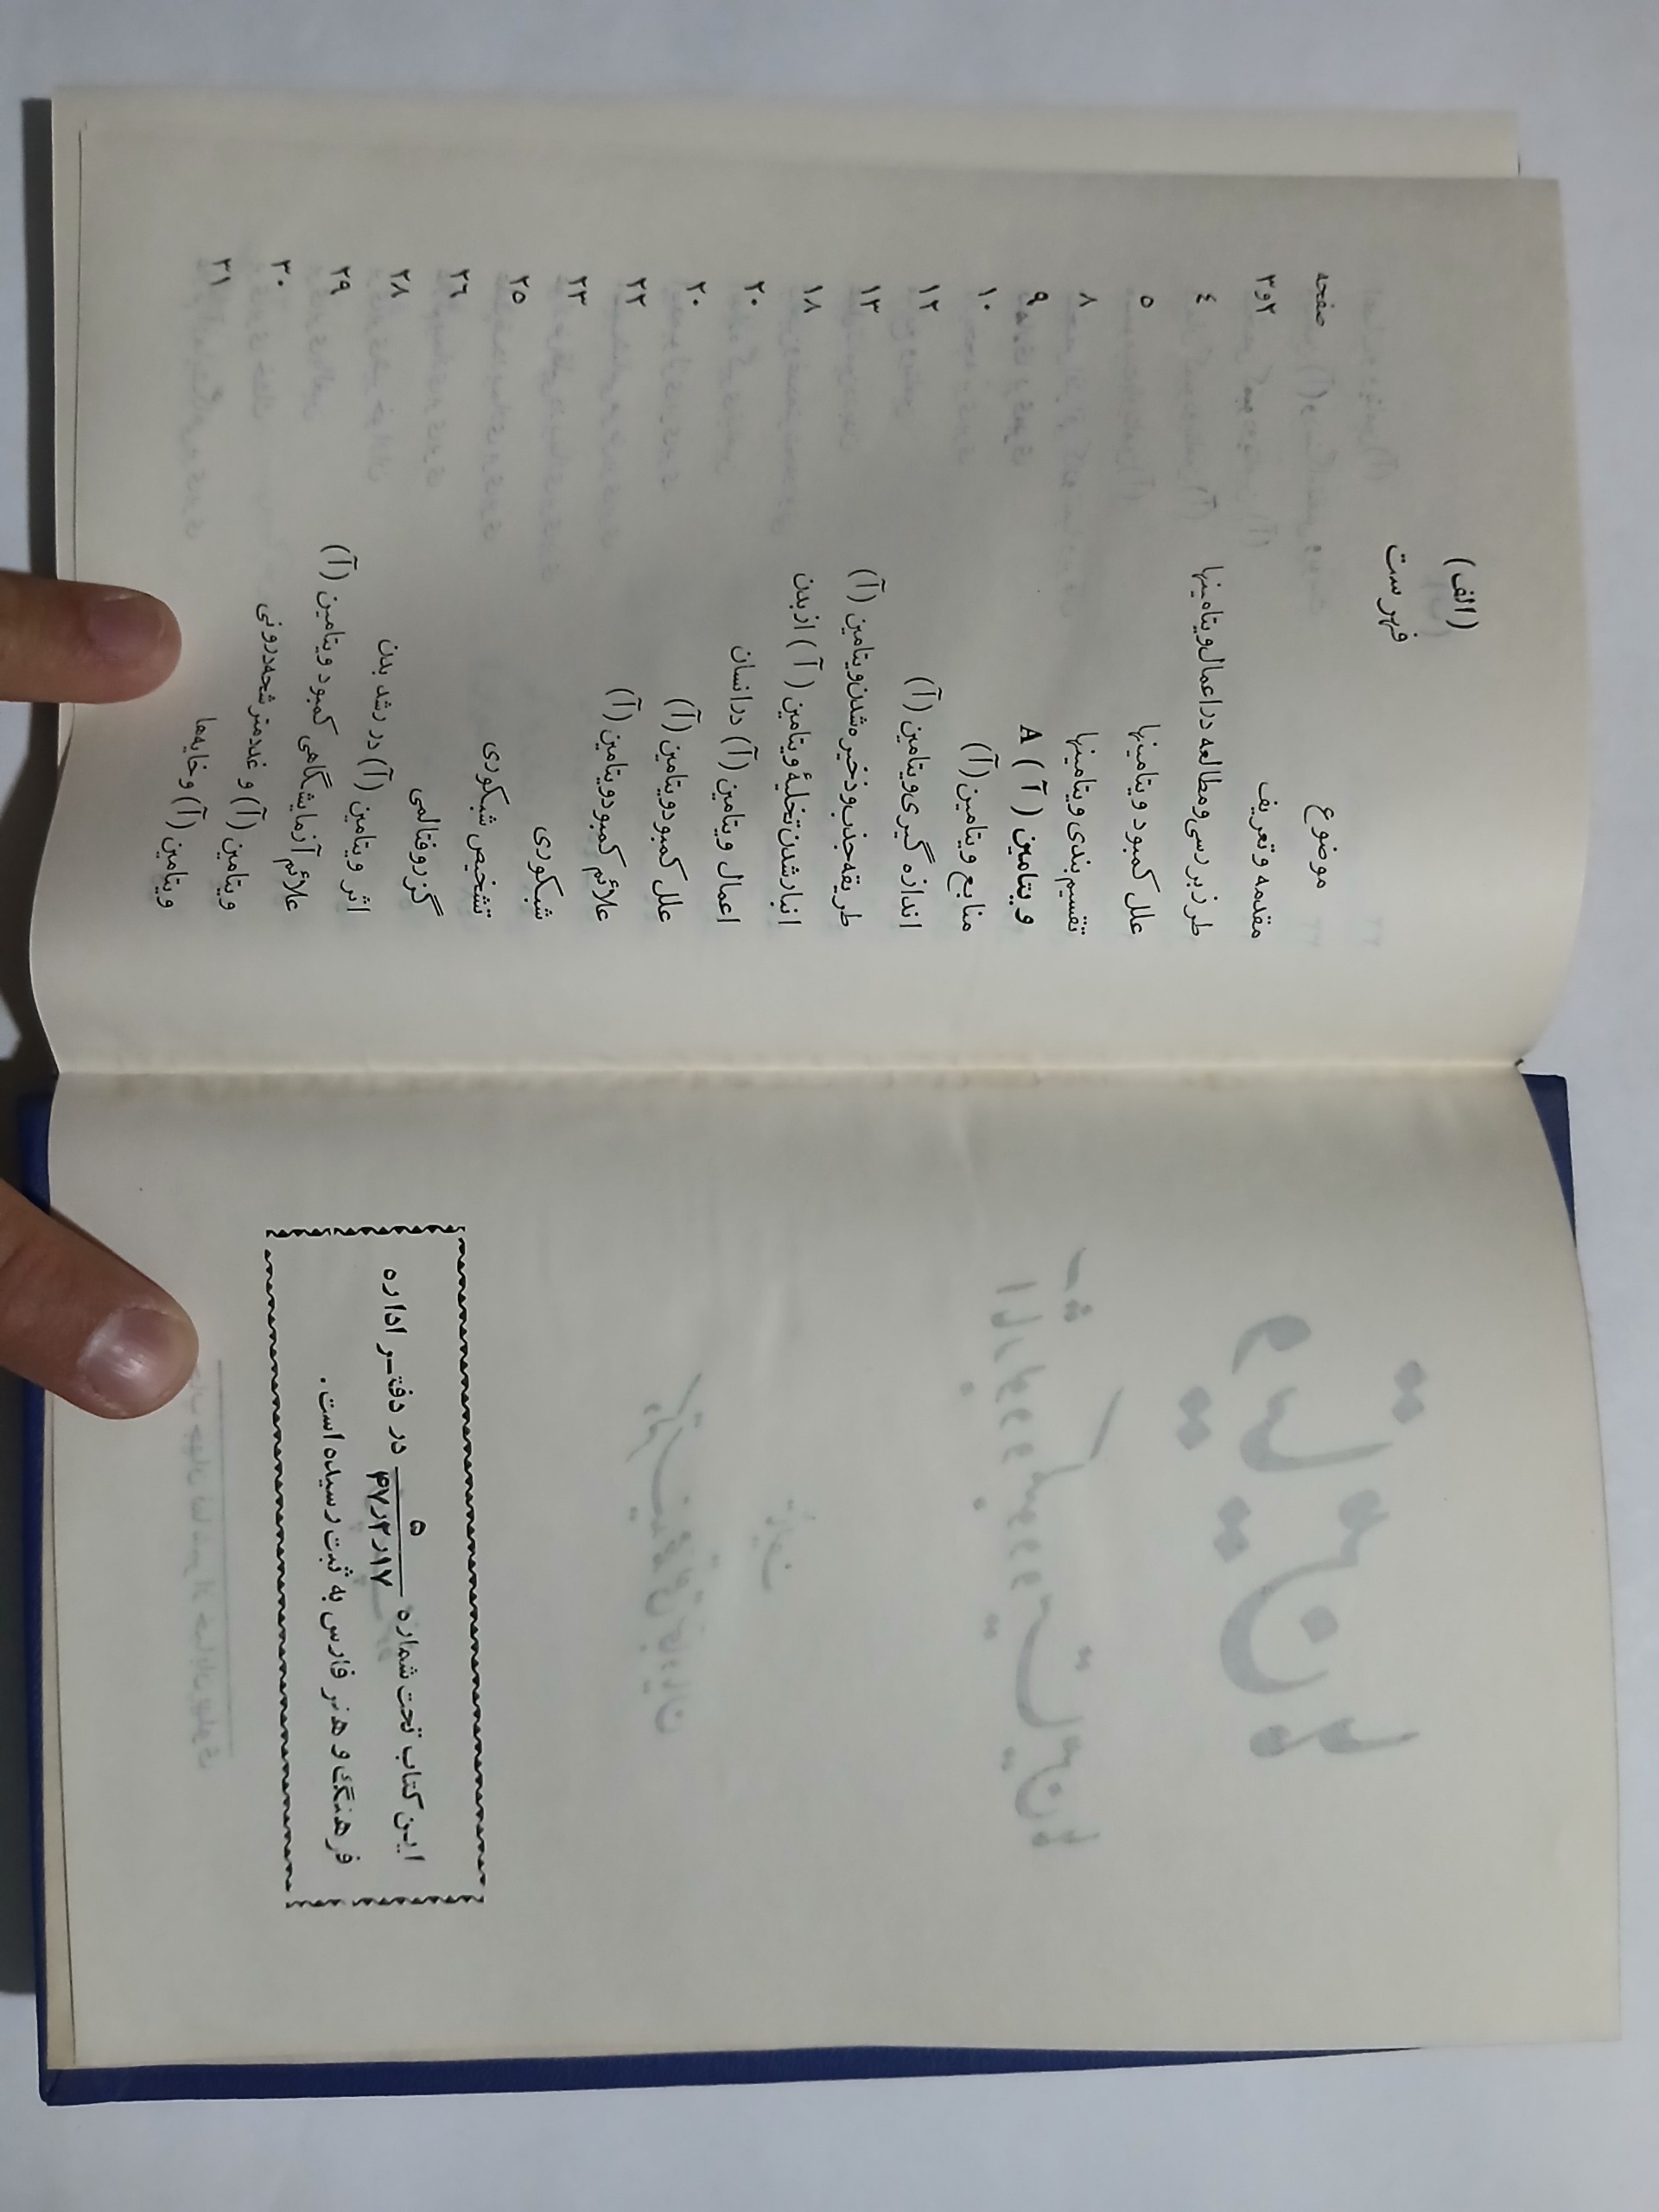 این کتاب تحت شماره ۵ / ۴۷ر۲ر۱۷ در دفتر اداره
فرهنگ و هنر فارس به ثبت رسیده است.
(الف)
فهرست
موضوع صفحه
مقدمه و تعریف ۲و۳
طرز بررسی و مطالعه در اعمال ویتامینها ٤
علل کمبود ویتامینها ۵
تقسیم بندی ویتامینها ۸
ویتامین (آ) A ۹
منابع ویتامین (آ) ۱۰
اندازه گیری ویتامین (آ) ۱۲
طریقه جذب و ذخیره شدن ویتامین (آ) ۱۳
انبار شدن تخلیهٔ ویتامین (آ) از بدن ۱۸
اعمال ویتامین (آ) در انسان ۲۰
علل کمبود ویتامین (آ) ۲۰
علائم کمبود ویتامین (آ) ۲۲
شبکوری ۲۳
تشخیص شبکوری ۲۵
گزروفتالمی ۲٦
اثر ویتامین (آ) در رشد بدن ۲۸
علائم آزمایشگاهی کمبود ویتامین (آ) ۲۹
ویتامین (آ) و غدد مترشحه درونی ۳۰
ویتامین (آ) و خایه‌ها ۳۱